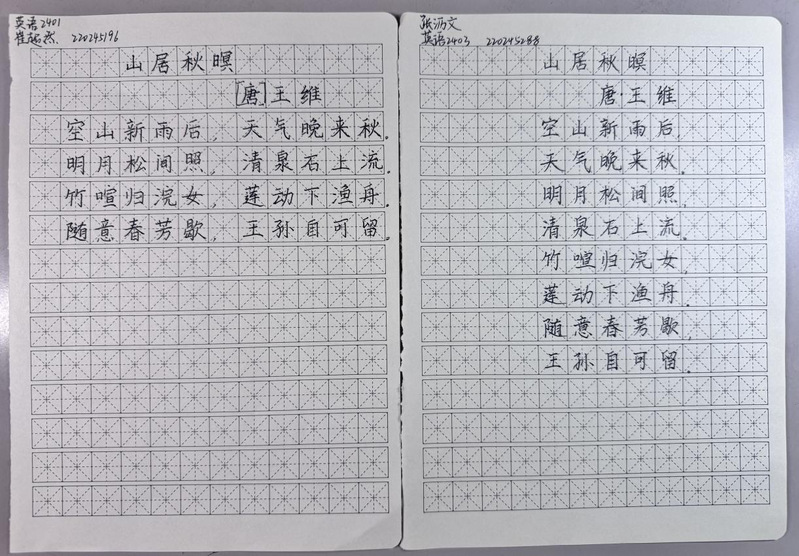 英语2401
崔懿然 220245196
山居秋暝
[唐]王维
空山新雨后,天气晚来秋.
明月松间照,清泉石上流.
竹喧归浣女,莲动下渔舟.
随意春芳歇,王孙自可留.
张沥文
英语2403 220245288
山居秋暝
唐·王维
空山新雨后,
天气晚来秋.
明月松间照,
清泉石上流.
竹喧归浣女,
莲动下渔舟.
随意春芳歇,
王孙自可留.